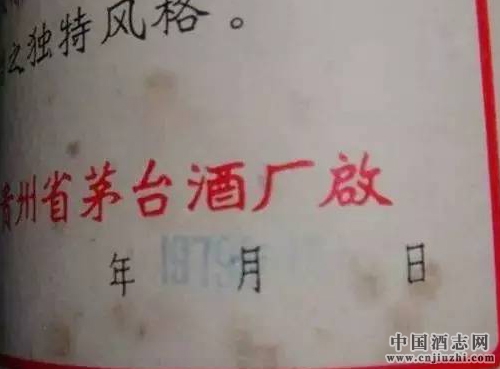 之独特风格。
贵州省茅台酒厂啟
年 1979 月 日
中国酒志网
www.cnjiuzhi.com